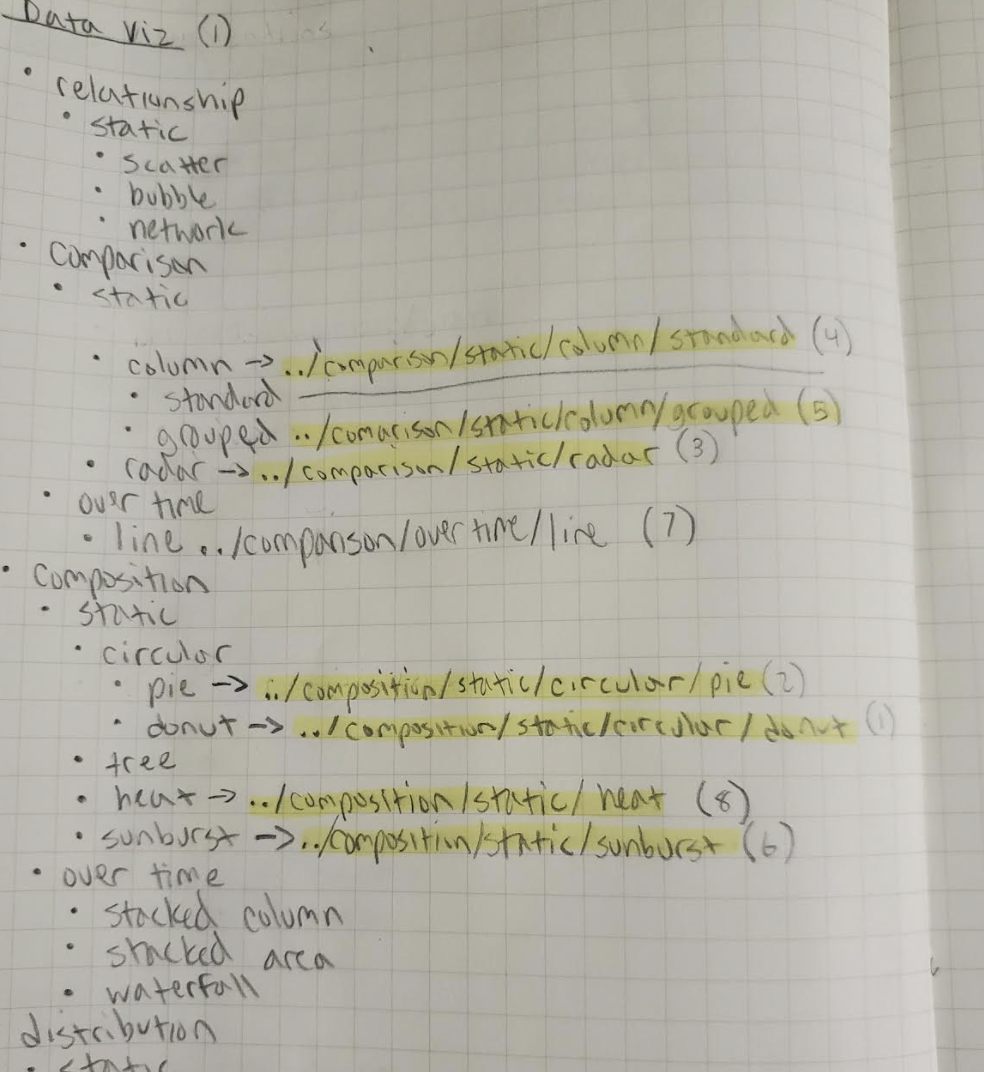 Data Viz (1)
• relationship
• static
• scatter
• bubble
• network
• comparison
• static
• column -> ../comparison/static/column/standard (4)
• standard
• grouped ../comarison/static/column/grouped (5)
• radar -> ../comparison/static/radar (3)
• over time
• line ../comparison/over time/line (7)
• composition
• static
• circular
• pie -> ../composition/static/circular/pie (2)
• donut -> ../composition/static/circular/donut (1)
• tree
• heat -> ../composition/static/heat (8)
• sunburst -> ../composition/static/sunburst (6)
• over time
• stacked column
• stacked area
• waterfall
distribution
• static